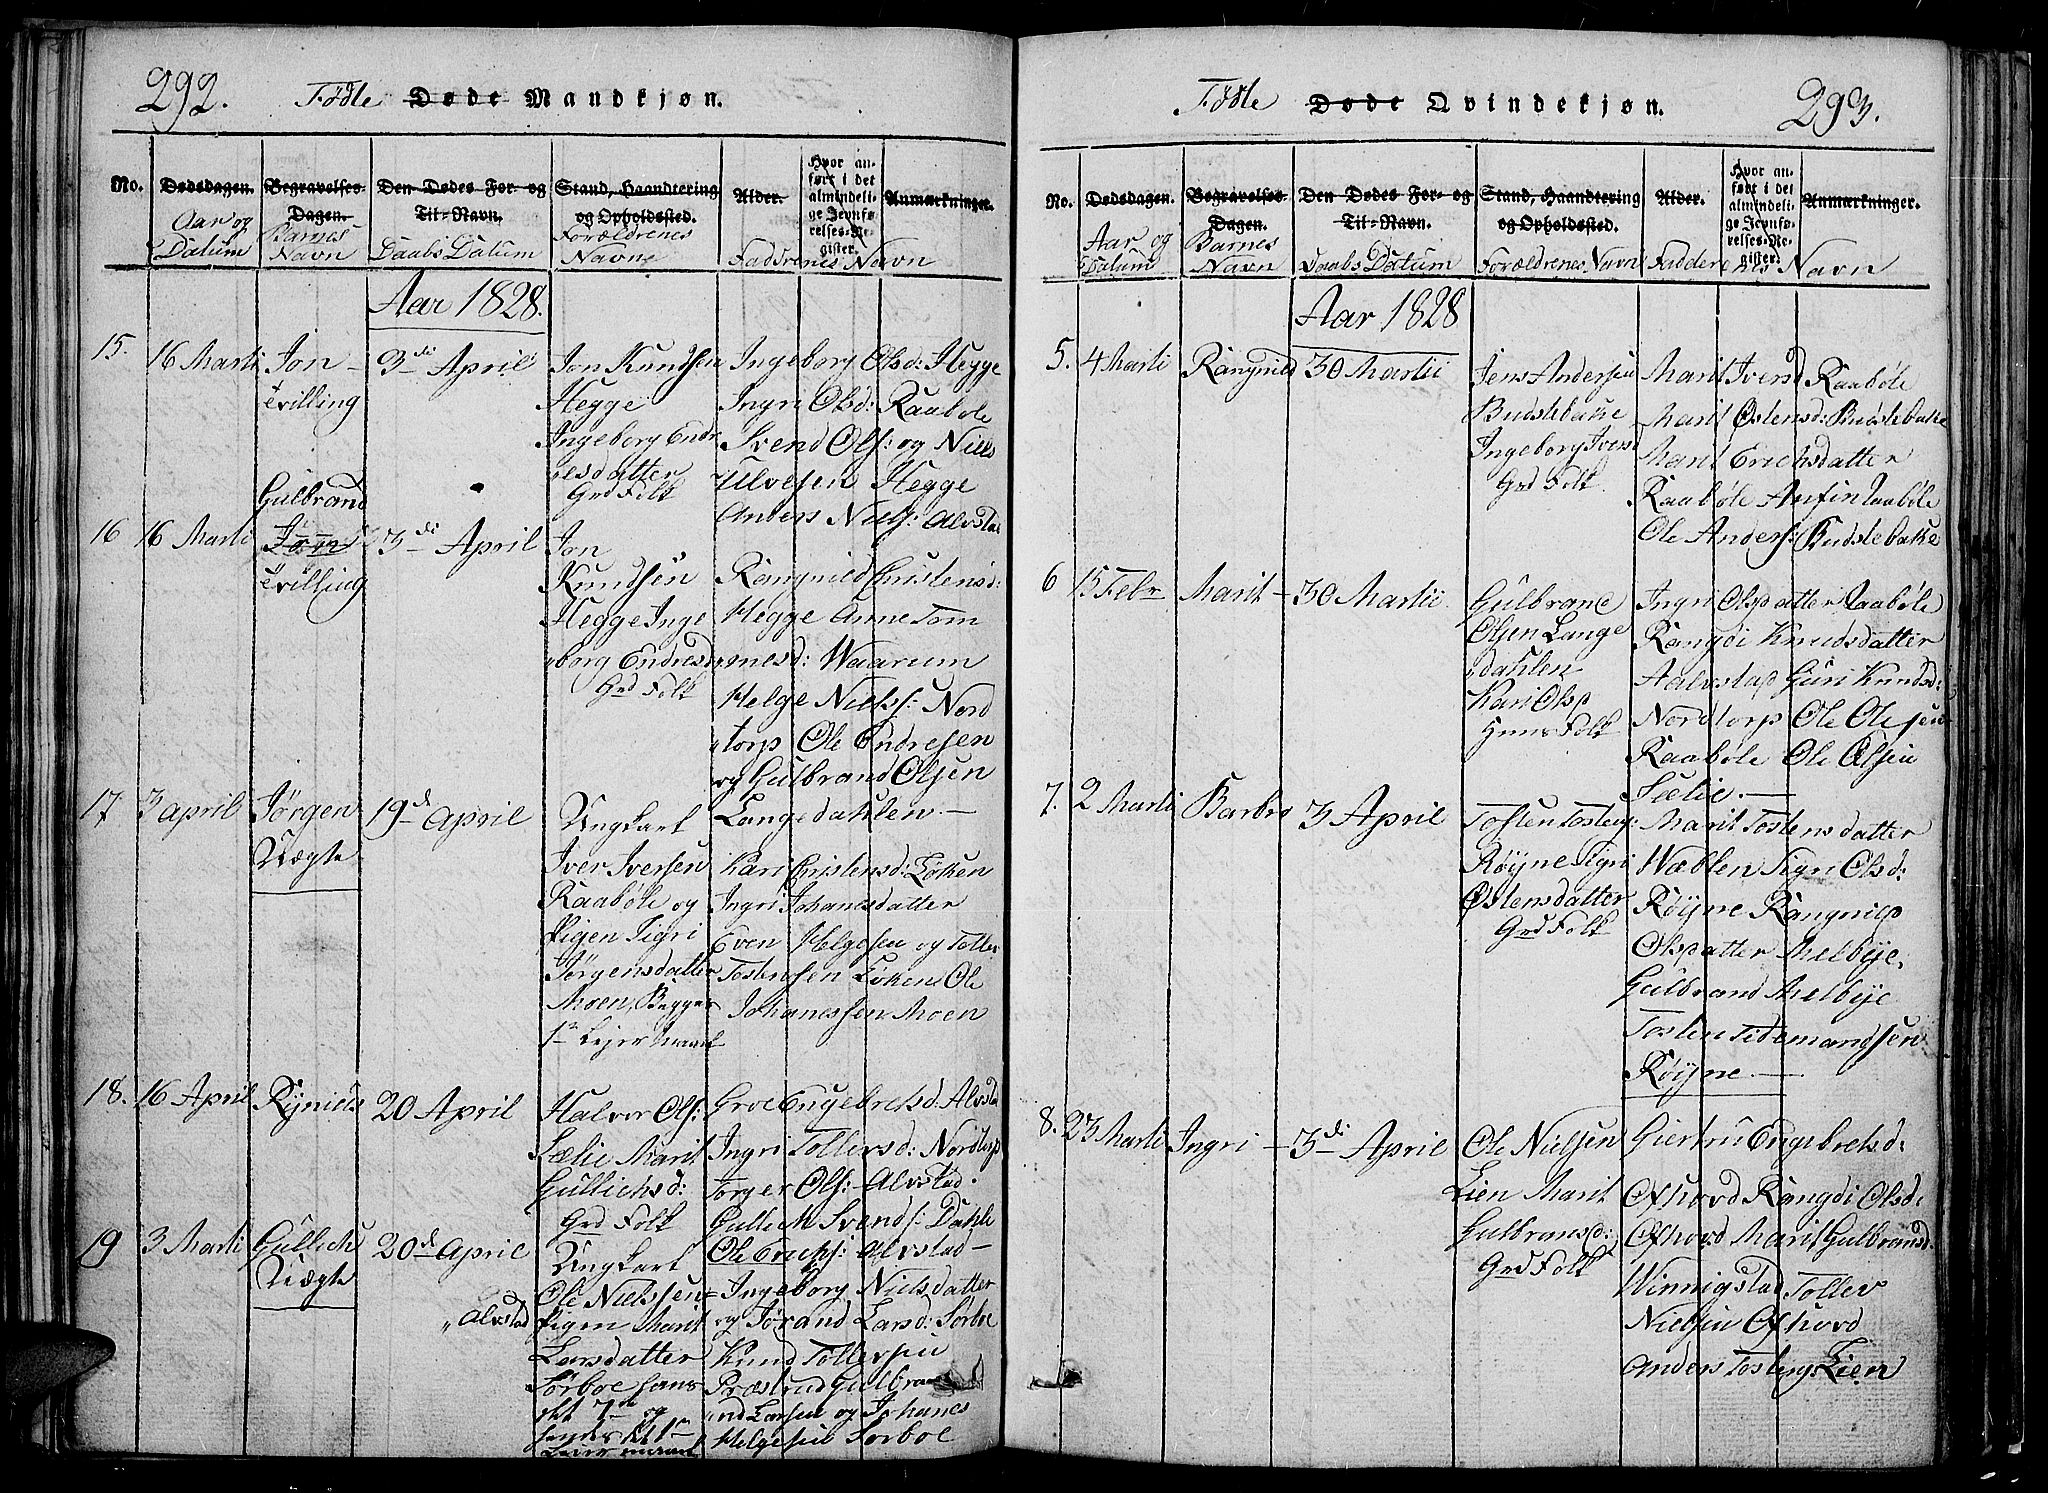 292. Fødte Døde Mandkjøn.
No. Dødsdagen. Begravelses-Dagen. Den Dødes For- og Til-Navn. Stand, Haandtering og Opholdssted. Alder. Hvor anført i det almindelige Jevnførelses-Register. Anmærkninger.
Aar og Datum Barnets Navn Daabs Datum Forældrenes Navne Faddrenes Navn
Aar 1828.
15. 16 Marti Jon - tvilling 3di April
Jon Knudsen
Hegge
Ingeborg Endr
esdatter
Grd Folk
Ingeborg Olsd: Hegge
Ingri Olsd: Raabøle
Svend Ols: og Niels
Ulvesen Hegge
Anders Niels: Alvstad
16 16 Marti Gulbrand
Jon
tvilling
3di April
Jon
Knudsen
Hegge Inge
borg Endresd
Grd Folk
Rangnild Christensd:
Hegge Anne Tom
mesd: Waarum
Helge Niels: Nord
torp Ole Endresen
og Gulbrand Olsen
Langedahlen. —
17. 3 april Jørgen
Uægte
19de April
Ungkarl
Iver Iversen
Raabøle og
Pigen Sigri
Jørgensdatter
Moen, Begges
1ste Lejermaal
Kari Christensd: Løken
Ingri Johanesdatter
Even Helgesen og Toller
Tostensen Løken Ole
Johanessen Moen
18. 16 April 20 April
Halvor Ols:
Sælie Marit
Gullichsd:
Grd Folk
Groe Engebretsd. Alvstad
Ingri Tollersd: Nordtorp
Torger Ols: Alvstad.
Gullich Svends: Dahle
Ole Erichs: Alvstad —
19 3 Marti Gullich
Uægte
20de April
Ungkarl
Ole Nielssen
Alvstad
Pigen Marit
Larsdatter
Sørboe hans
Ingeborg Nielsdatter
og Jørand Larsd: Sørboe
Knud Tollersen
Præstrud Gulbra
nd Larsen og Johanes
Helgesen Sørboe
Fødte Døde Qvindekjøn. 293.
No. Dødsdagen. Begravelses-Dagen. Den Dødes For- og Til-Navn. Stand, Haandtering og Opholdssted. Alder. Hvor anført i det almindelige Jevnførelses-Register. Anmærkninger.
Aar og Datum Barnes Navn Daabs Datum Forældrenes Navn Faddere nes Navn
Aar 1828
5. 4 Marti Rangnild 30 Martii
Jens Andersen
Budstebake
Ingeborg Iversd
Grd Folk.
Marit Iversd Raabøle
Marit Østensd: Budstebake
Marit Erichsdatter
Raabøle Anfin Raabøle
Ole Anders: Budstebake
6 15 Febr Marit - 30 Martii
Gulbrand
Olsen Lange
dahlen
Kari Olsd
Huus Folk
Ingri Olsdatter Raabøle
Rangdi Knudsdatter
Aalvstad Guri Knudsd:
Nordtorp Ole Olesen
Raabøle Ole Olsen
Sælie. —
7. 2 Marti Barbro 3 April
Tosten Tostens:
Røyne Sigri
Østensdatter
Grd Folk
Marit Tostensdatter
Wæblen Sigri Olsd:
Røyne Rangnild
Olsdatter Melbye,
Gulbrand Melbye
Tosten Tidemandsen
Røyne. —
8. 23 Marti Ingri - 3di April
Ole Nielsen
Lien Marit
Gulbransd:
Grd Folk
Giertru Engebretsd:
Ofshovd Rangdi Olsd:
Ofshovd Marit Gulbransd.
Winnigstad Toller
Nielsen Ofshovd
Anders Tostens: Lien